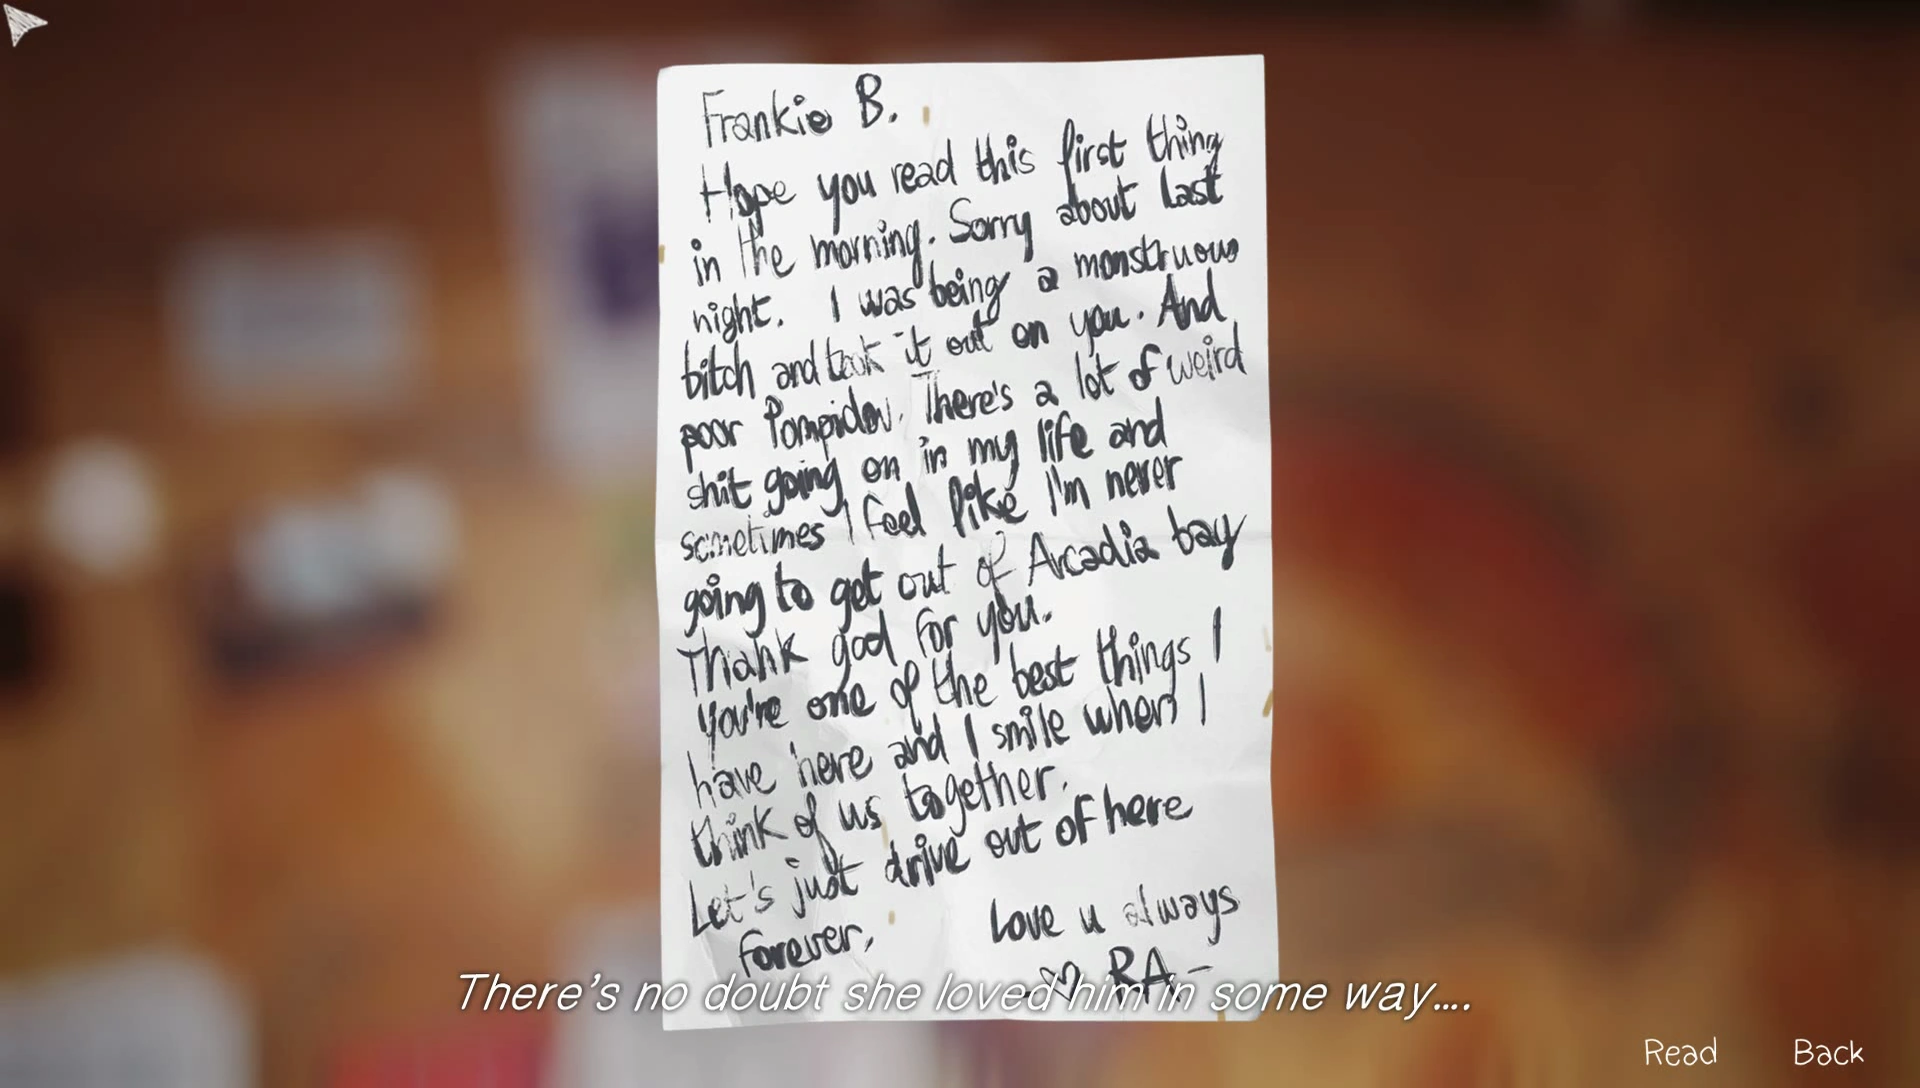 Frankie B.
Hope you read this first thing
in the morning. Sorry about last
night. I was being a monstruous
bitch and took it out on you. And
poor Pompidou. There's a lot of weird
shit going on in my life and
sometimes I feel like I'm never
going to get out of Arcadia bay
Thank god for you.
You're one of the best things I
have here and I smile when I
think of us together.
Let's just drive out of here
forever.
Love u always
♡ RA -
There's no doubt she loved him in some way....
Read Back